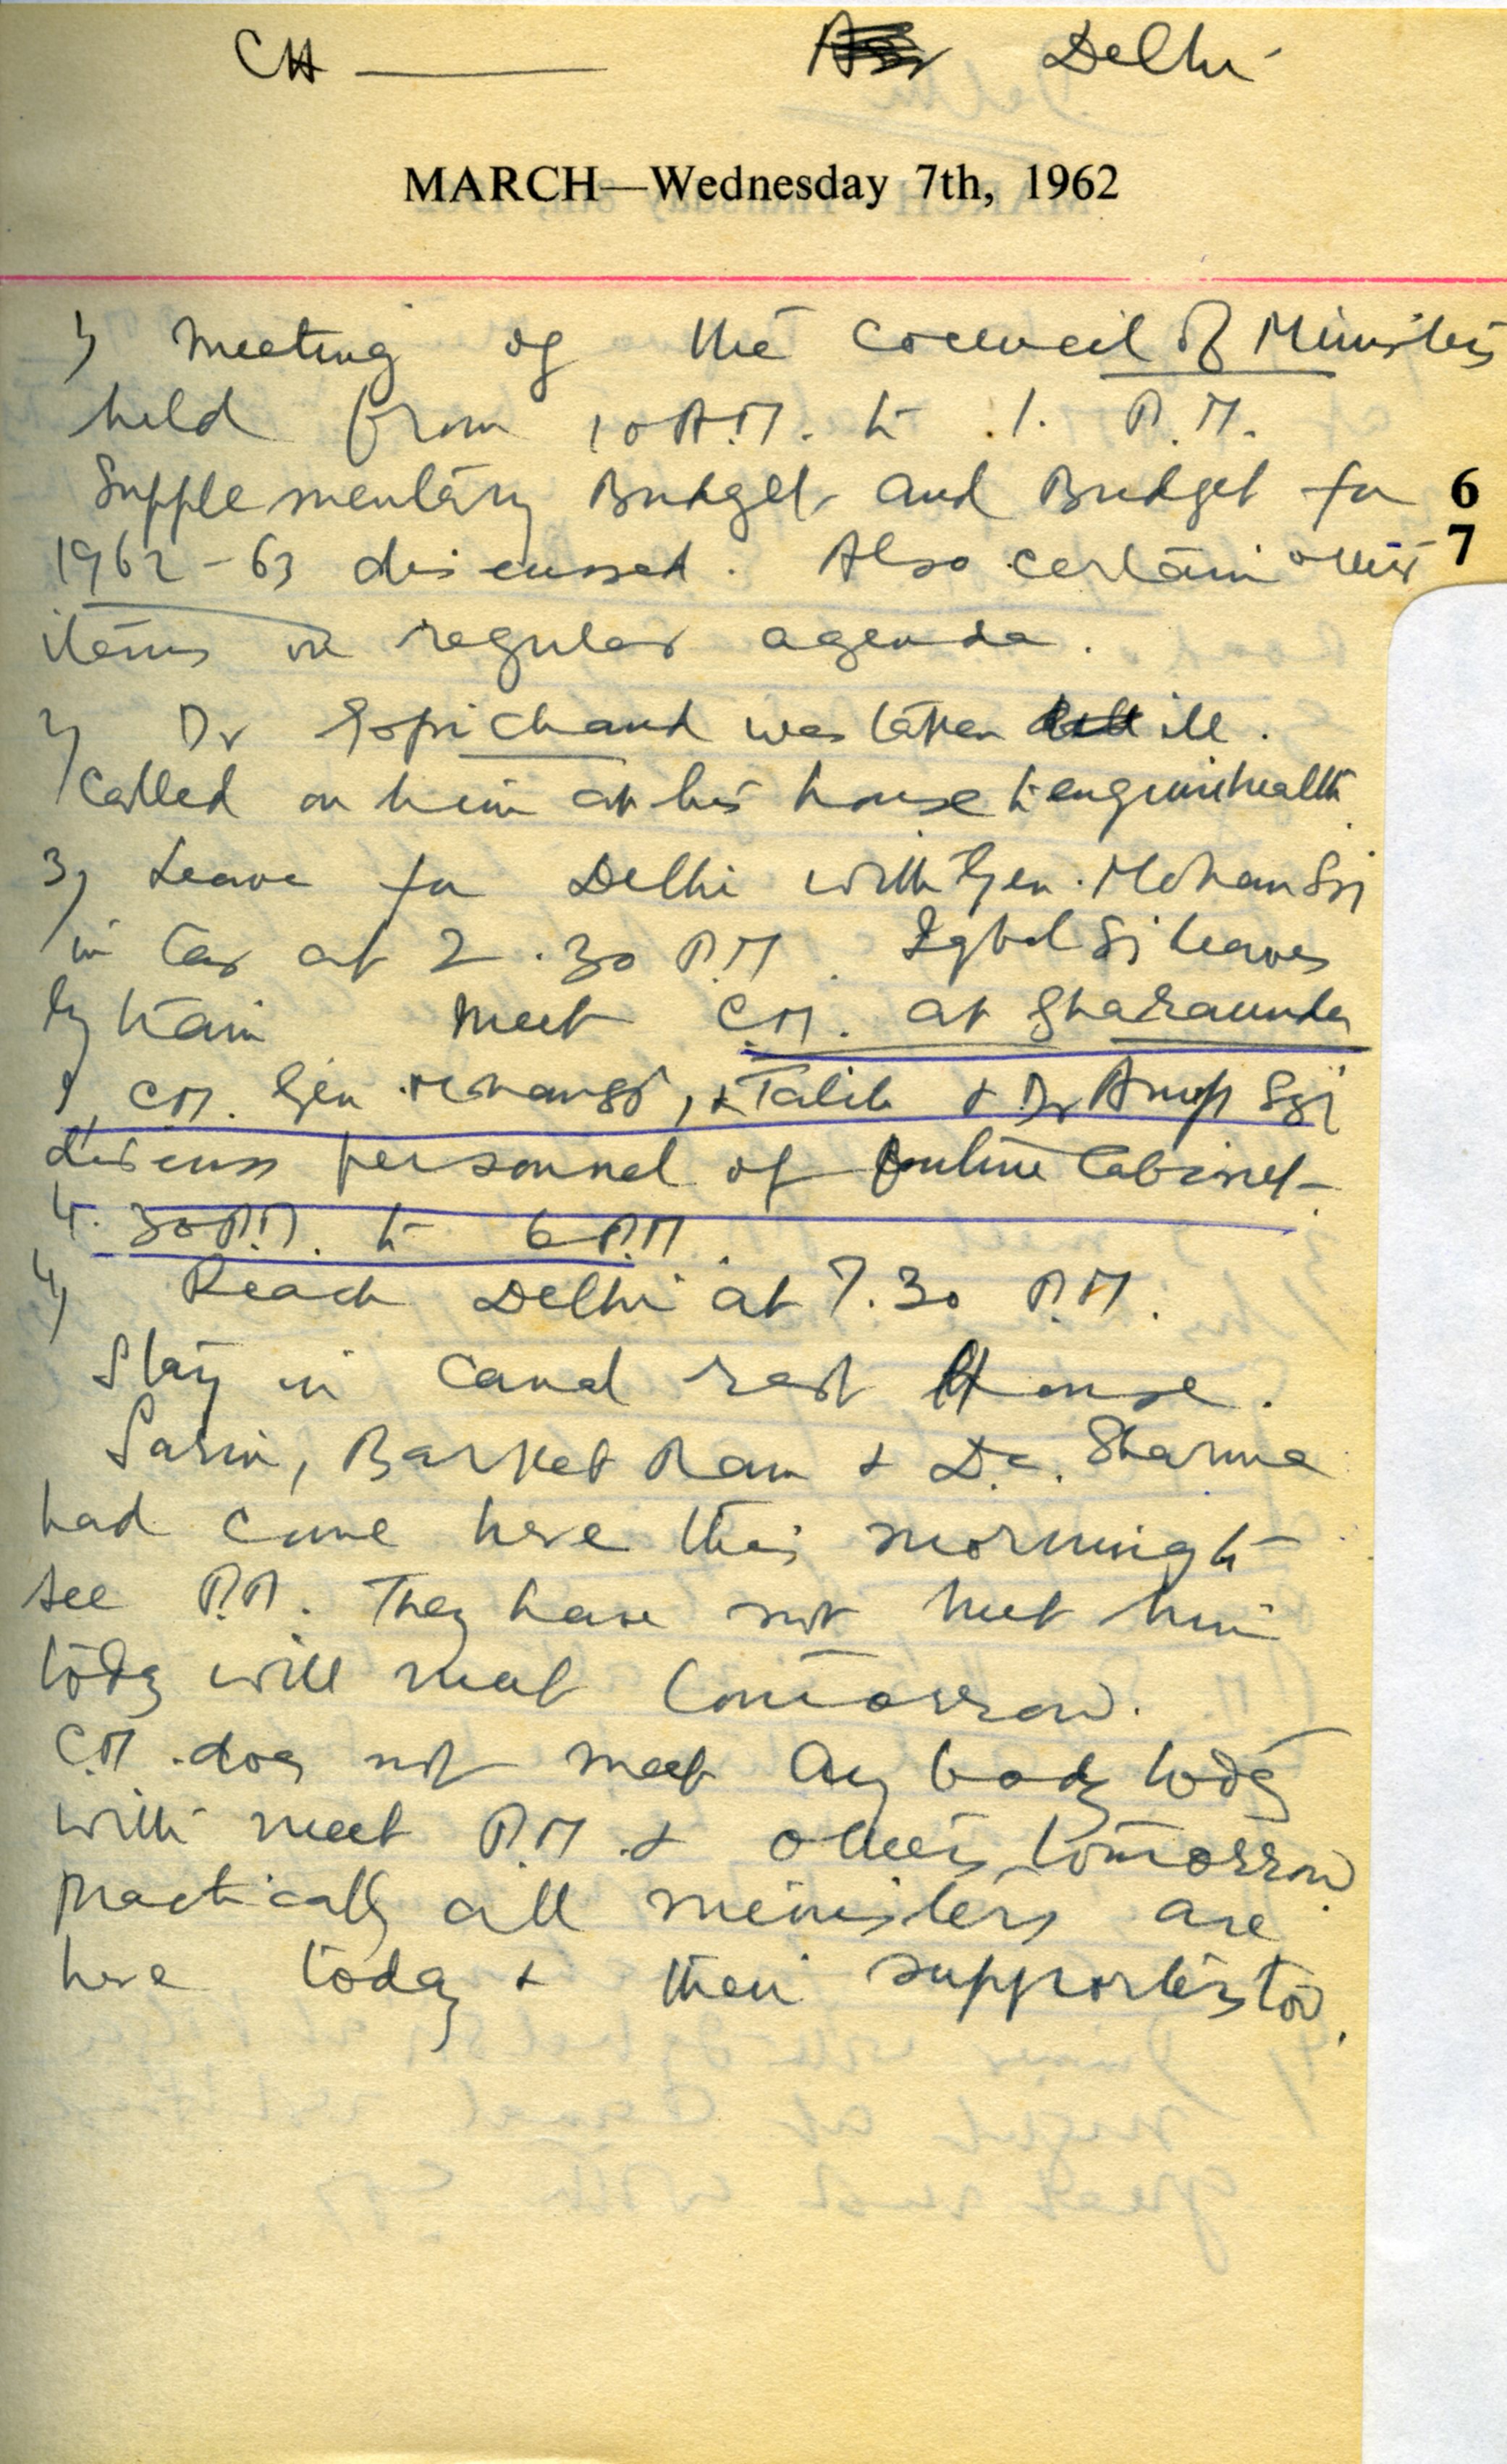 CH — Delhi
MARCH—Wednesday 7th, 1962
1) Meeting of the Council of Ministers
held from 10 A.M. to 1. P.M.
Supplementary Budget and Budget for
1962-63 discussed. Also certain other
items on regular agenda.
2) Dr Gopichand was taken ill.
Called on him at his house to enquire health
3) Leave for Delhi with Gen. Mohan Sgj
in Car at 2.30 P.M. Iqbal Sj leaves
by train meet C.M. at Gharaunda
I, C.M. Gen Mohansj, & Talib & Dr Anup Sgj
discuss personnel of future Cabinet
4.30 P.M. to 6 P.M.
4) Reach Delhi at 7.30 P.M.
Stay in Canal rest House.
Sarin, Barket Ram & D.C. Sharma
had come here this morning to
see P.M. They have not met him
today will meet tomorrow.
C.M. does not meet any body today
will meet P.M & others tomorrow
Practically all ministers are
here today & their supporters too.
6
7